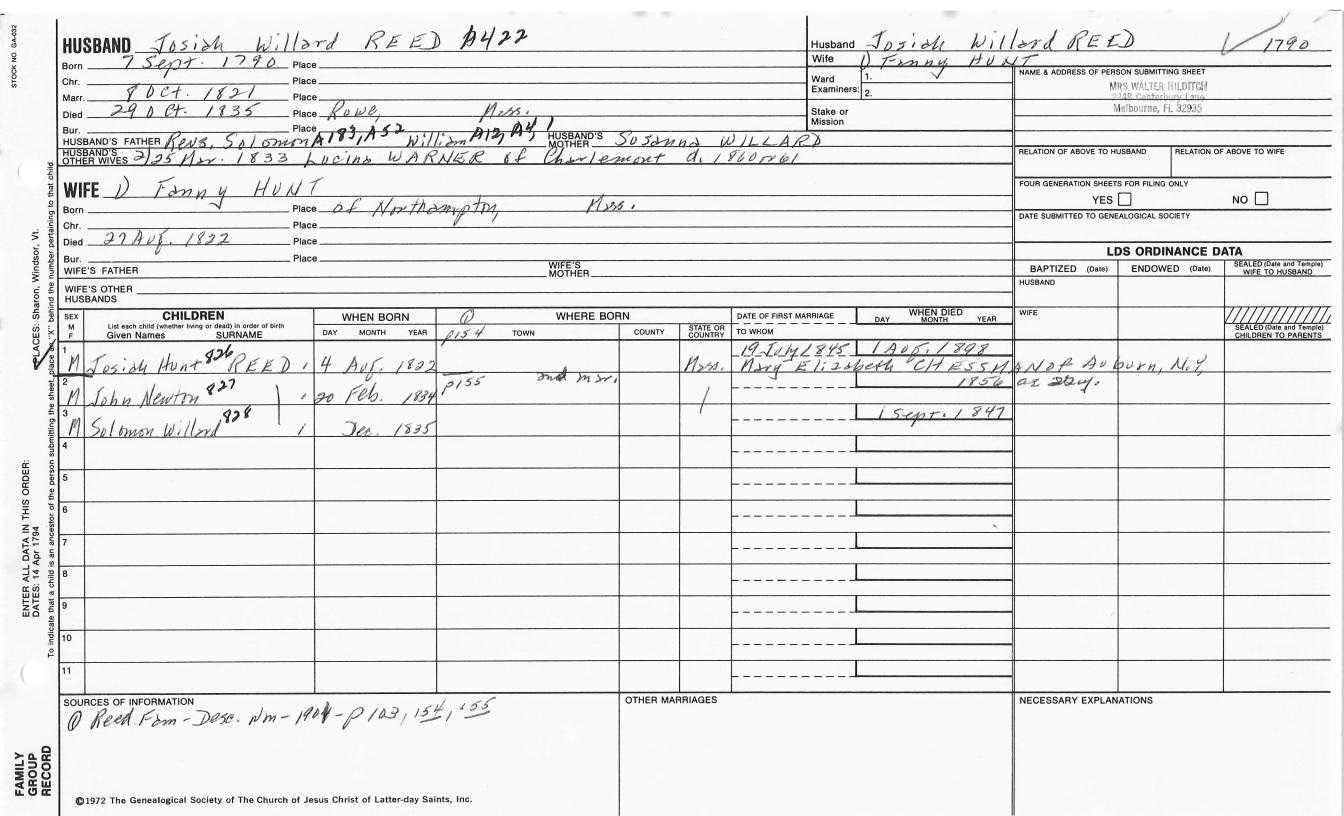 STOCK NO. GA-032
HUSBAND Josiah Willard REED A422
Born 7 Sept. 1790 Place
Chr. Place
Marr. 8 Oct. 1821 Place
Died 29 Oct. 1835 Place Rowe, Mass.
Bur. Place
HUSBAND'S FATHER Revs. Solomon A183, A52 William A12, A4, 1 HUSBAND'S MOTHER Susanna WILLARD
HUSBAND'S OTHER WIVES 2) 25 Mar. 1833 Lucina WARNER of Charlemont d. 1860 or 61
Husband Josiah Willard REED 1790
Wife 1) Fanny HUNT
Ward Examiners: 1.
2.
Stake or Mission
NAME & ADDRESS OF PERSON SUBMITTING SHEET
MRS WALTER HILDITCH
2248 Canterbury Lane
Melbourne, FL 32935
RELATION OF ABOVE TO HUSBAND RELATION OF ABOVE TO WIFE
FOUR GENERATION SHEETS FOR FILING ONLY
YES NO
DATE SUBMITTED TO GENEALOGICAL SOCIETY
WIFE 1) Fanny HUNT
Born Place of Northampton, Mass.
Chr. Place
Died 27 Aug. 1822 Place
Bur. Place
WIFE'S FATHER WIFE'S MOTHER
WIFE'S OTHER HUSBANDS
LDS ORDINANCE DATA
BAPTIZED (Date) ENDOWED (Date) SEALED (Date and Temple) WIFE TO HUSBAND
HUSBAND
WIFE
SEALED (Date and Temple) CHILDREN TO PARENTS
SEX M F
CHILDREN
List each child (whether living or dead) in order of birth
Given Names SURNAME
WHEN BORN
DAY MONTH YEAR
① WHERE BORN
p154 TOWN COUNTY STATE OR COUNTRY
DATE OF FIRST MARRIAGE
TO WHOM
WHEN DIED
DAY MONTH YEAR
19 July 1845 1 Aug. 1898
1 M Josiah Hunt 826 REED 4 Aug. 1822 Mass. Mary Elizabeth CHESSMAN of Auburn, N.Y.
p155 2nd mar. 1856 as
2 M John Newton 827 20 Feb. 1834
1 Sept. 1847
3 M Solomon Willard 828 Dec. 1835
4
5
6
7
8
9
10
11
SOURCES OF INFORMATION
① Reed Fam - Desc. Wm - 1904 - p 103, 154, 155
OTHER MARRIAGES
NECESSARY EXPLANATIONS
©1972 The Genealogical Society of The Church of Jesus Christ of Latter-day Saints, Inc.
FAMILY GROUP RECORD
ENTER ALL DATA IN THIS ORDER:
DATES: 14 Apr 1794
PLACES: Sharon, Windsor, Vt.
To indicate that a child is an ancestor of the person submitting the sheet, place an "X" behind the number pertaining to that child.